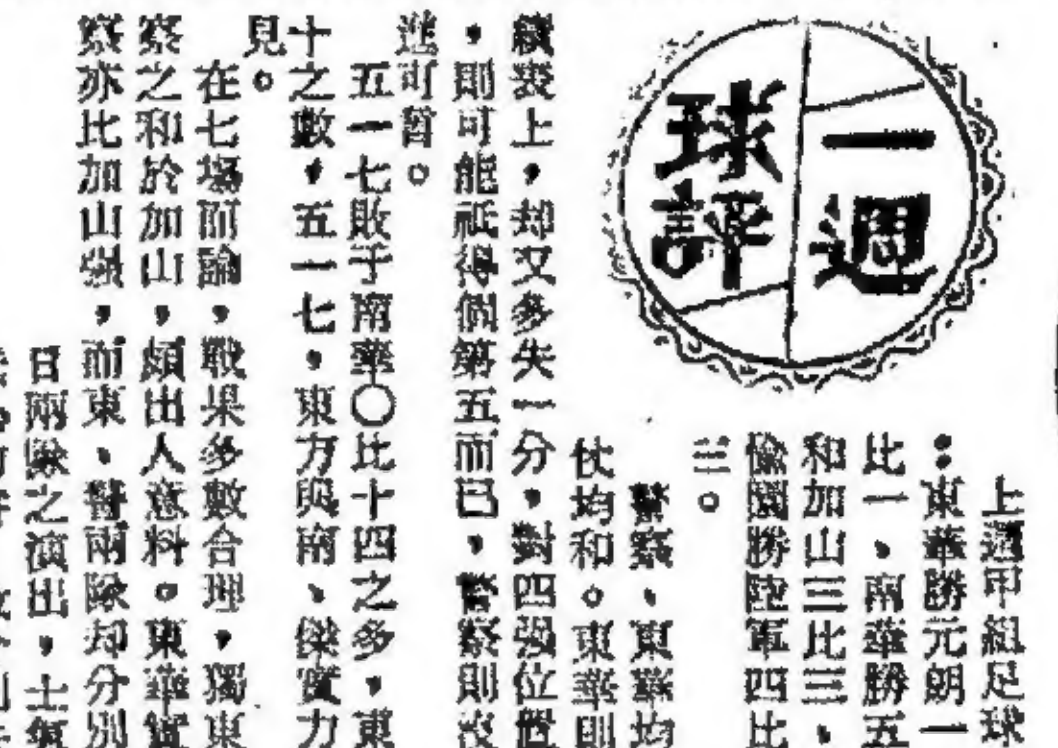 一週
球評
上週甲組足球
：東華勝元朗一
比一、南華勝五
和加山三比三、
愉園勝陸軍四比
三。
警察、東華均
仗均和。東華則
續喪上，却又多失一分，對四強位置
，則可能祇得個第五而已，警察則沒
進可暫。
五一七敗于南華〇比十四之多，東
十之數，五一七，東方與南、傑實力
見。
在七場而論，戰果多數合理，獨東
察之和於加山，頗出人意料。東華實
察亦比加山強，而東、警兩隊却分別
日兩隊之演出，士氣